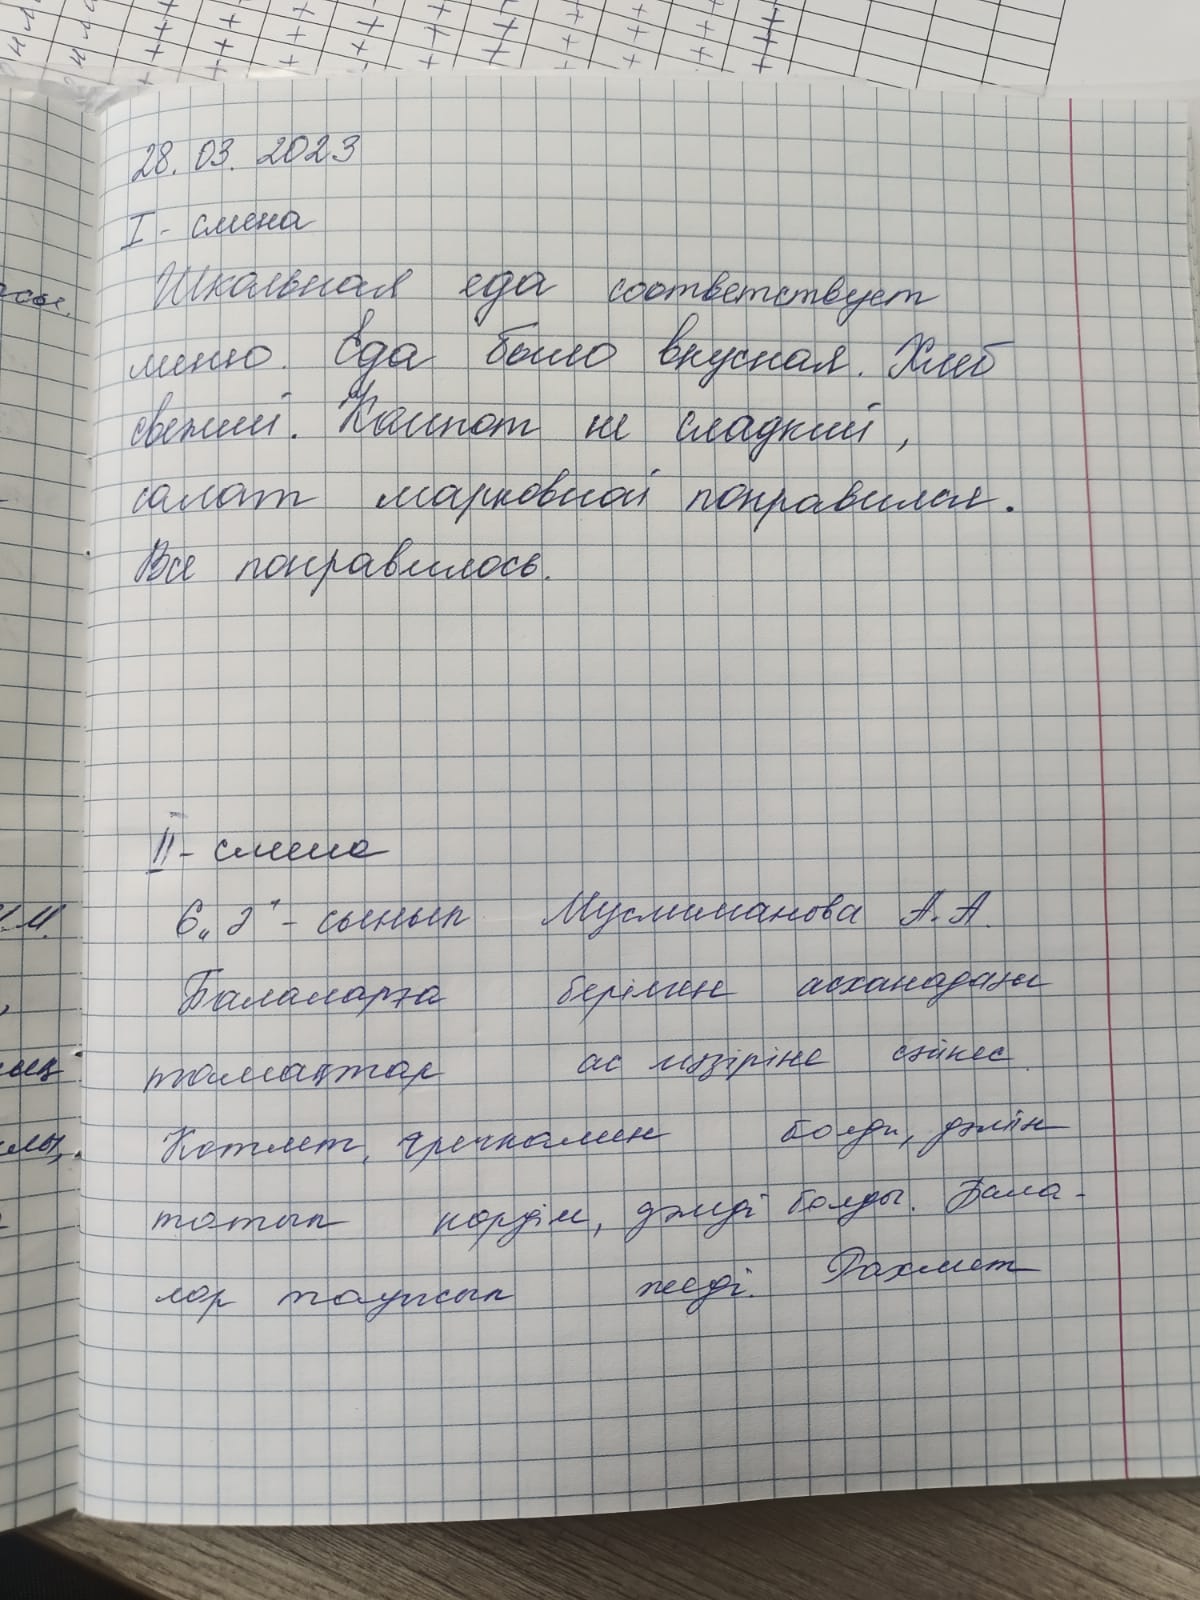 28.03.2023
I - смена
Школьная еда соответствует
меню. Еда было вкусная. Хлеб
свежий. Компот не сладкий,
салат марковной понравился.
Все понравилось.
II - смена
6 "Ә" - сынып Муслиманова А.А.
Балаларға берілген асханадағы
тамақтар ас мәзіріне сәйкес
Котлет, гречкамен болды, дәмін
татып көрдім, дәмді болды. Бала-
лар тауысып жеді. Рахмет